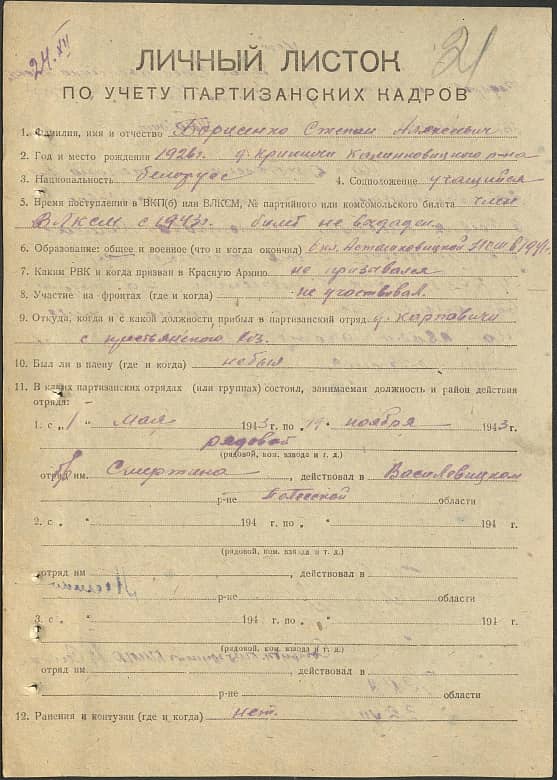 24.XII
21
ЛИЧНЫЙ ЛИСТОК
ПО УЧЕТУ ПАРТИЗАНСКИХ КАДРОВ
1. Фамилия, имя и отчество Борисенко Степан
2. Год и место рождения 1926г. д. Крипичи Калинковицкого р-на
3. Национальность белорус 4. Соцположение учащийся
5. Время поступления в ВКП(б) или ВЛКСМ, № партийного или комсомольского билета член
ВЛКСМ с 1943г. билет не выдаден
6. Образование: общее и военное (что и когда окончил) 6 кл. НСШ в 1941г.
7. Каким РВК и когда призван в Красную Армию не призывался
8. Участие на фронтах (где и когда) не участвовал.
9. Откуда, когда и с какой должности прибыл в партизанский отряд д. Карповичи
с крестьянского
10. Был ли в плену (где и когда) небыл
11. В каких партизанских отрядах (или группах) состоял, занимаемая должность и район действия
отряда:
1. с „1“ Мая 1943 г. по „19“ ноября 1943 г.
рядовой
(рядовой, ком. взвода и т. д.)
отряд им. , действовал в Василевицком
р-не Полесской области
2. с „ “ 194 г. по „ “ 194 г.
(рядовой, ком. взвода и т. д.)
отряд им , действовал в
р-не области
3. с „ “ 194 г. по „ “ 194 г.
(рядовой, ком. взвода и т. д.)
отряд им. , действовал в
р-не области
12. Ранения и контузии (где и когда) нет.